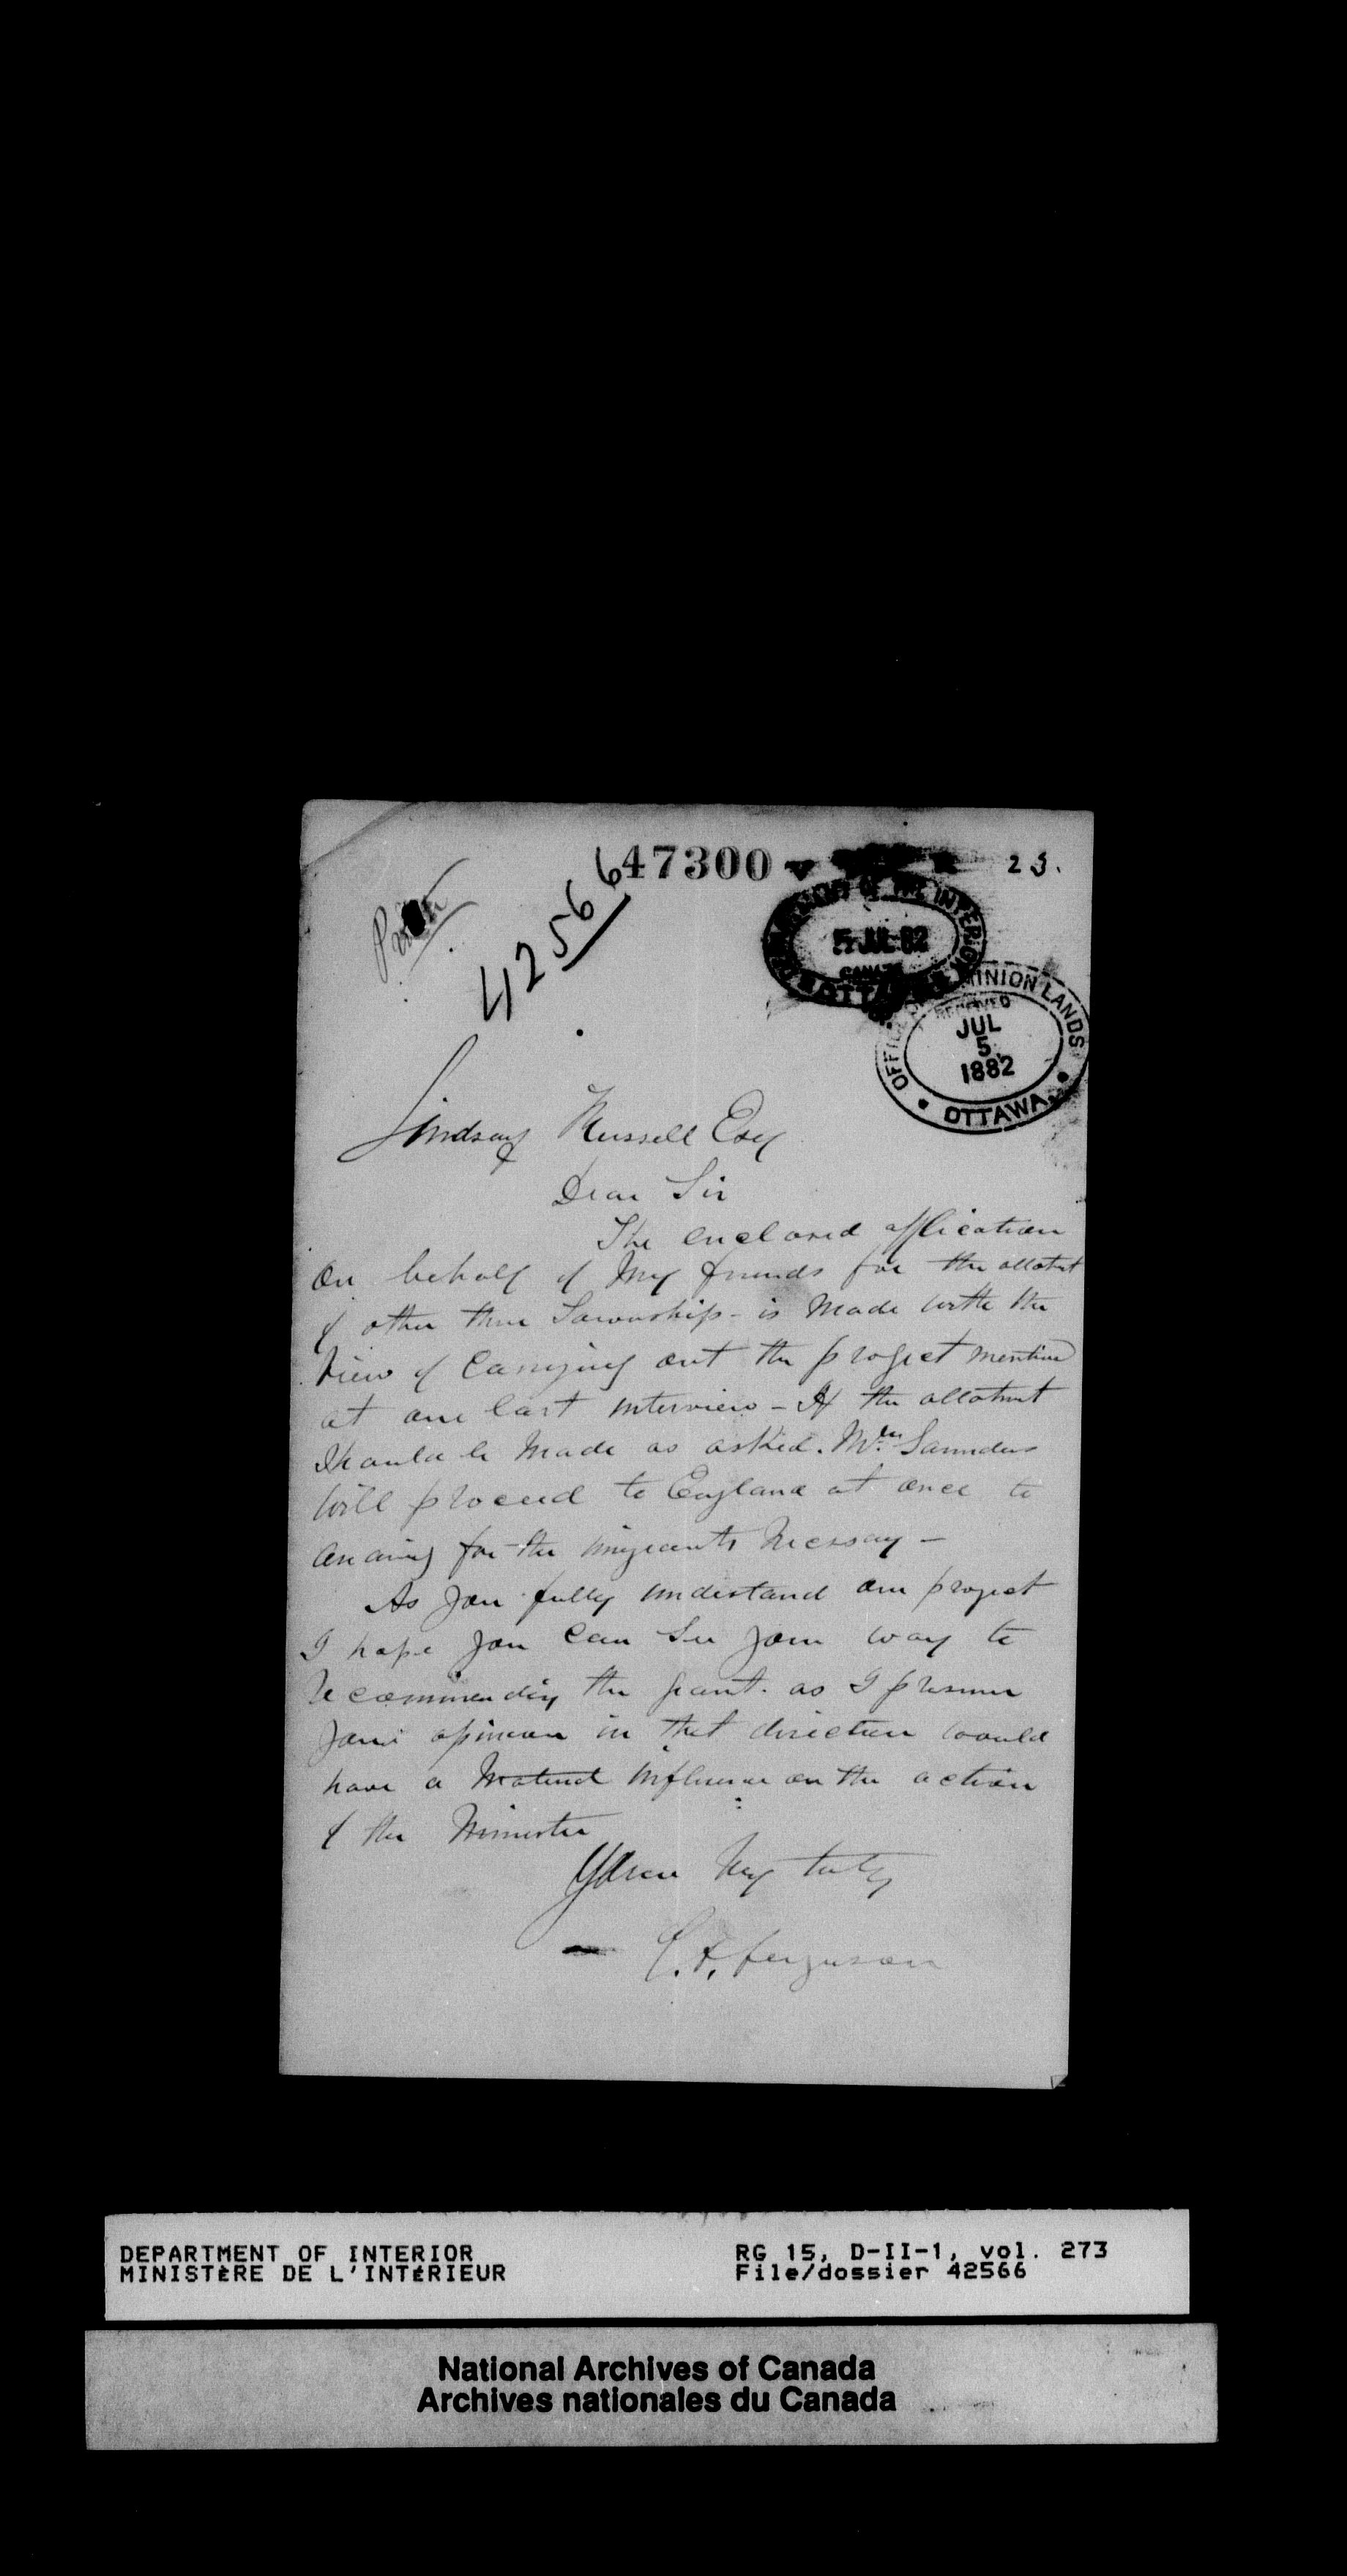 47300
23.
42566
DEPARTMENT OF THE INTERIOR
5 JUL 82
CANADA
OTTAWA
OFFICE DOMINION LANDS
RECEIVED
JUL
5
1882
OTTAWA
Lindsay Russell Esq
Dear Sir
The enclosed application
on behalf of my friends for the allotmt
of other three Township - is made with the
view of carrying out the project mentioned
at our last interview - If the allotmt
should be made as asked. Mr. Saunders
will proceed to England at once to
arrang for the imigrants necessay -
As you fully understand our project
I hope you can see your way to
recommending the grant. as I presume
your opinion in that direction would
have a material influence on the action
of the Minister
Yours very truly
C. F. Ferguson
DEPARTMENT OF INTERIOR
MINISTÈRE DE L'INTÉRIEUR
RG 15, D-II-1, vol. 273
File/dossier 42566
National Archives of Canada
Archives nationales du Canada